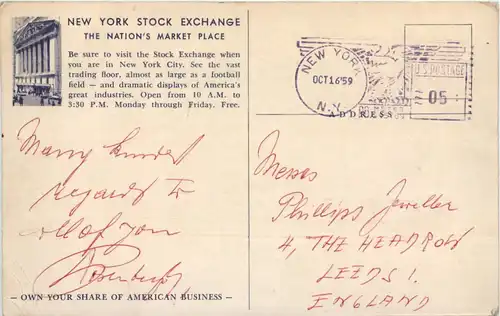 NEW YORK STOCK EXCHANGE
THE NATION'S MARKET PLACE
Be sure to visit the Stock Exchange when
you are in New York City. See the vast
trading floor, almost as large as a football
field — and dramatic displays of America's
great industries. Open from 10 A.M. to
3:30 P.M. Monday through Friday. Free.
Many kindest
regards to
all of you
— OWN YOUR SHARE OF AMERICAN BUSINESS —
NEW YORK
OCT 16 '59
N.Y.
U.S. POSTAGE
05
ADDRESS
Messrs
Phillips Jeweller
4, THE HEADROW
LEEDS 1.
ENGLAND